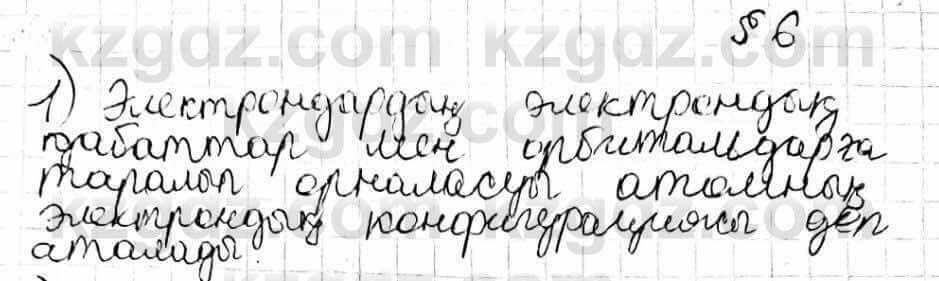 § 6
1) Электрондардың электрондық
қабаттар мен орбитальдарға
таралып орналасуы атомның
электрондық конфигурациясы деп
аталады.
kzgdz.com kzgdz.com